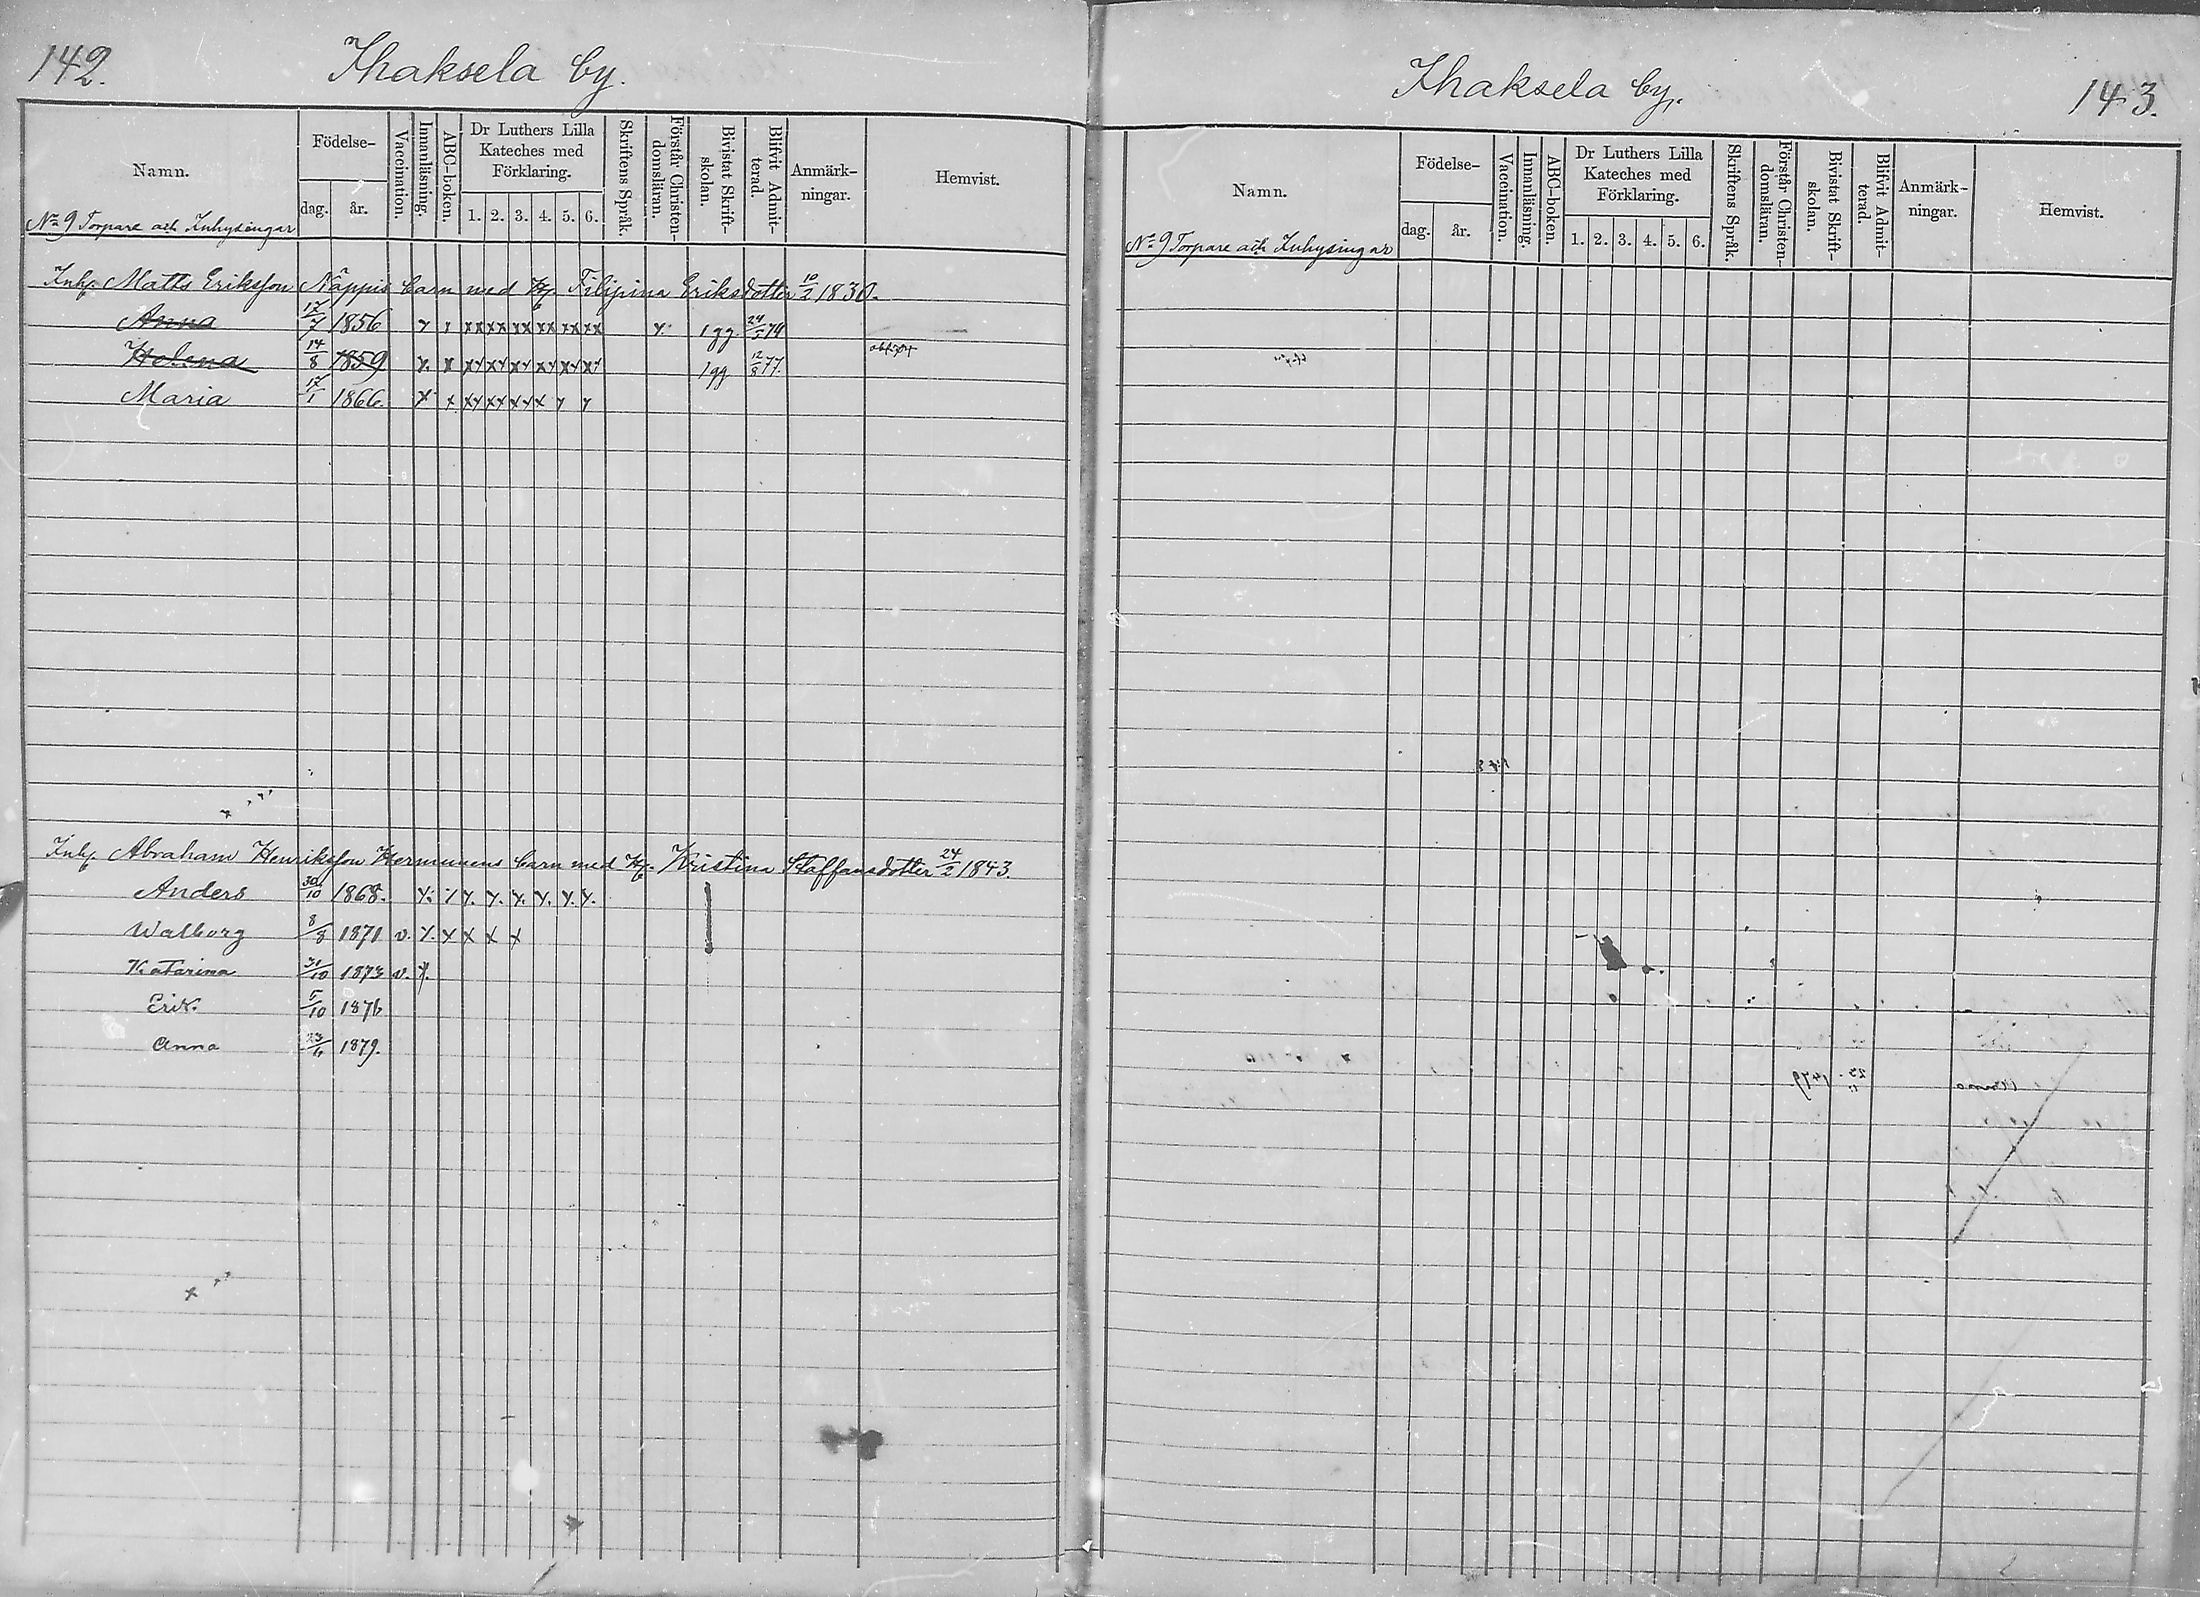 142.
Ihaksela by.
Namn.
Födelse-
dag. år.
Vaccination.
Innanläsning.
ABC-boken.
Dr Luthers Lilla
Kateches med
Förklaring.
1. 2. 3. 4. 5. 6.
Skriftens Språk.
Förstår Christen-
domsläran.
Bivistat Skrift-
skolan.
Blifvit Admit-
terad.
Anmärk-
ningar.
Hemvist.
No 9 Torpare och Inhysingar
Inhs. Matts Eriksson Näppis barn med H. Filipina Eriksdotter 10/2 1830.
Anna 17/7 1856 x x xx xx xx xx xx xx x. 1 gg. 24/5 74
Helena 14/8 1859 x. x xx xx xx xx xx xx 1 gg 12/8 77.
Maria 17/1 1866 x x xx xx xx x x x
Inhs. Abraham Henriksson Hermunens barn med H. Kristina Staffansdotter 24/2 1843.
Anders 30/10 1868. x. x x. x. x. x. x. x.
Walborg 8/8 1871 v. x. x x x x
Katarina 31/10 1873 v. x.
Erik. 5/10 1876
Anna 23/6 1879.
Ihaksela by.
143.
Namn.
Födelse-
dag. år.
Vaccination.
Innanläsning.
ABC-boken.
Dr Luthers Lilla
Kateches med
Förklaring.
1. 2. 3. 4. 5. 6.
Skriftens Språk.
Förstår Christen-
domsläran.
Bivistat Skrift-
skolan.
Blifvit Admit-
terad.
Anmärk-
ningar.
Hemvist.
No 9 Torpare och Inhysingar